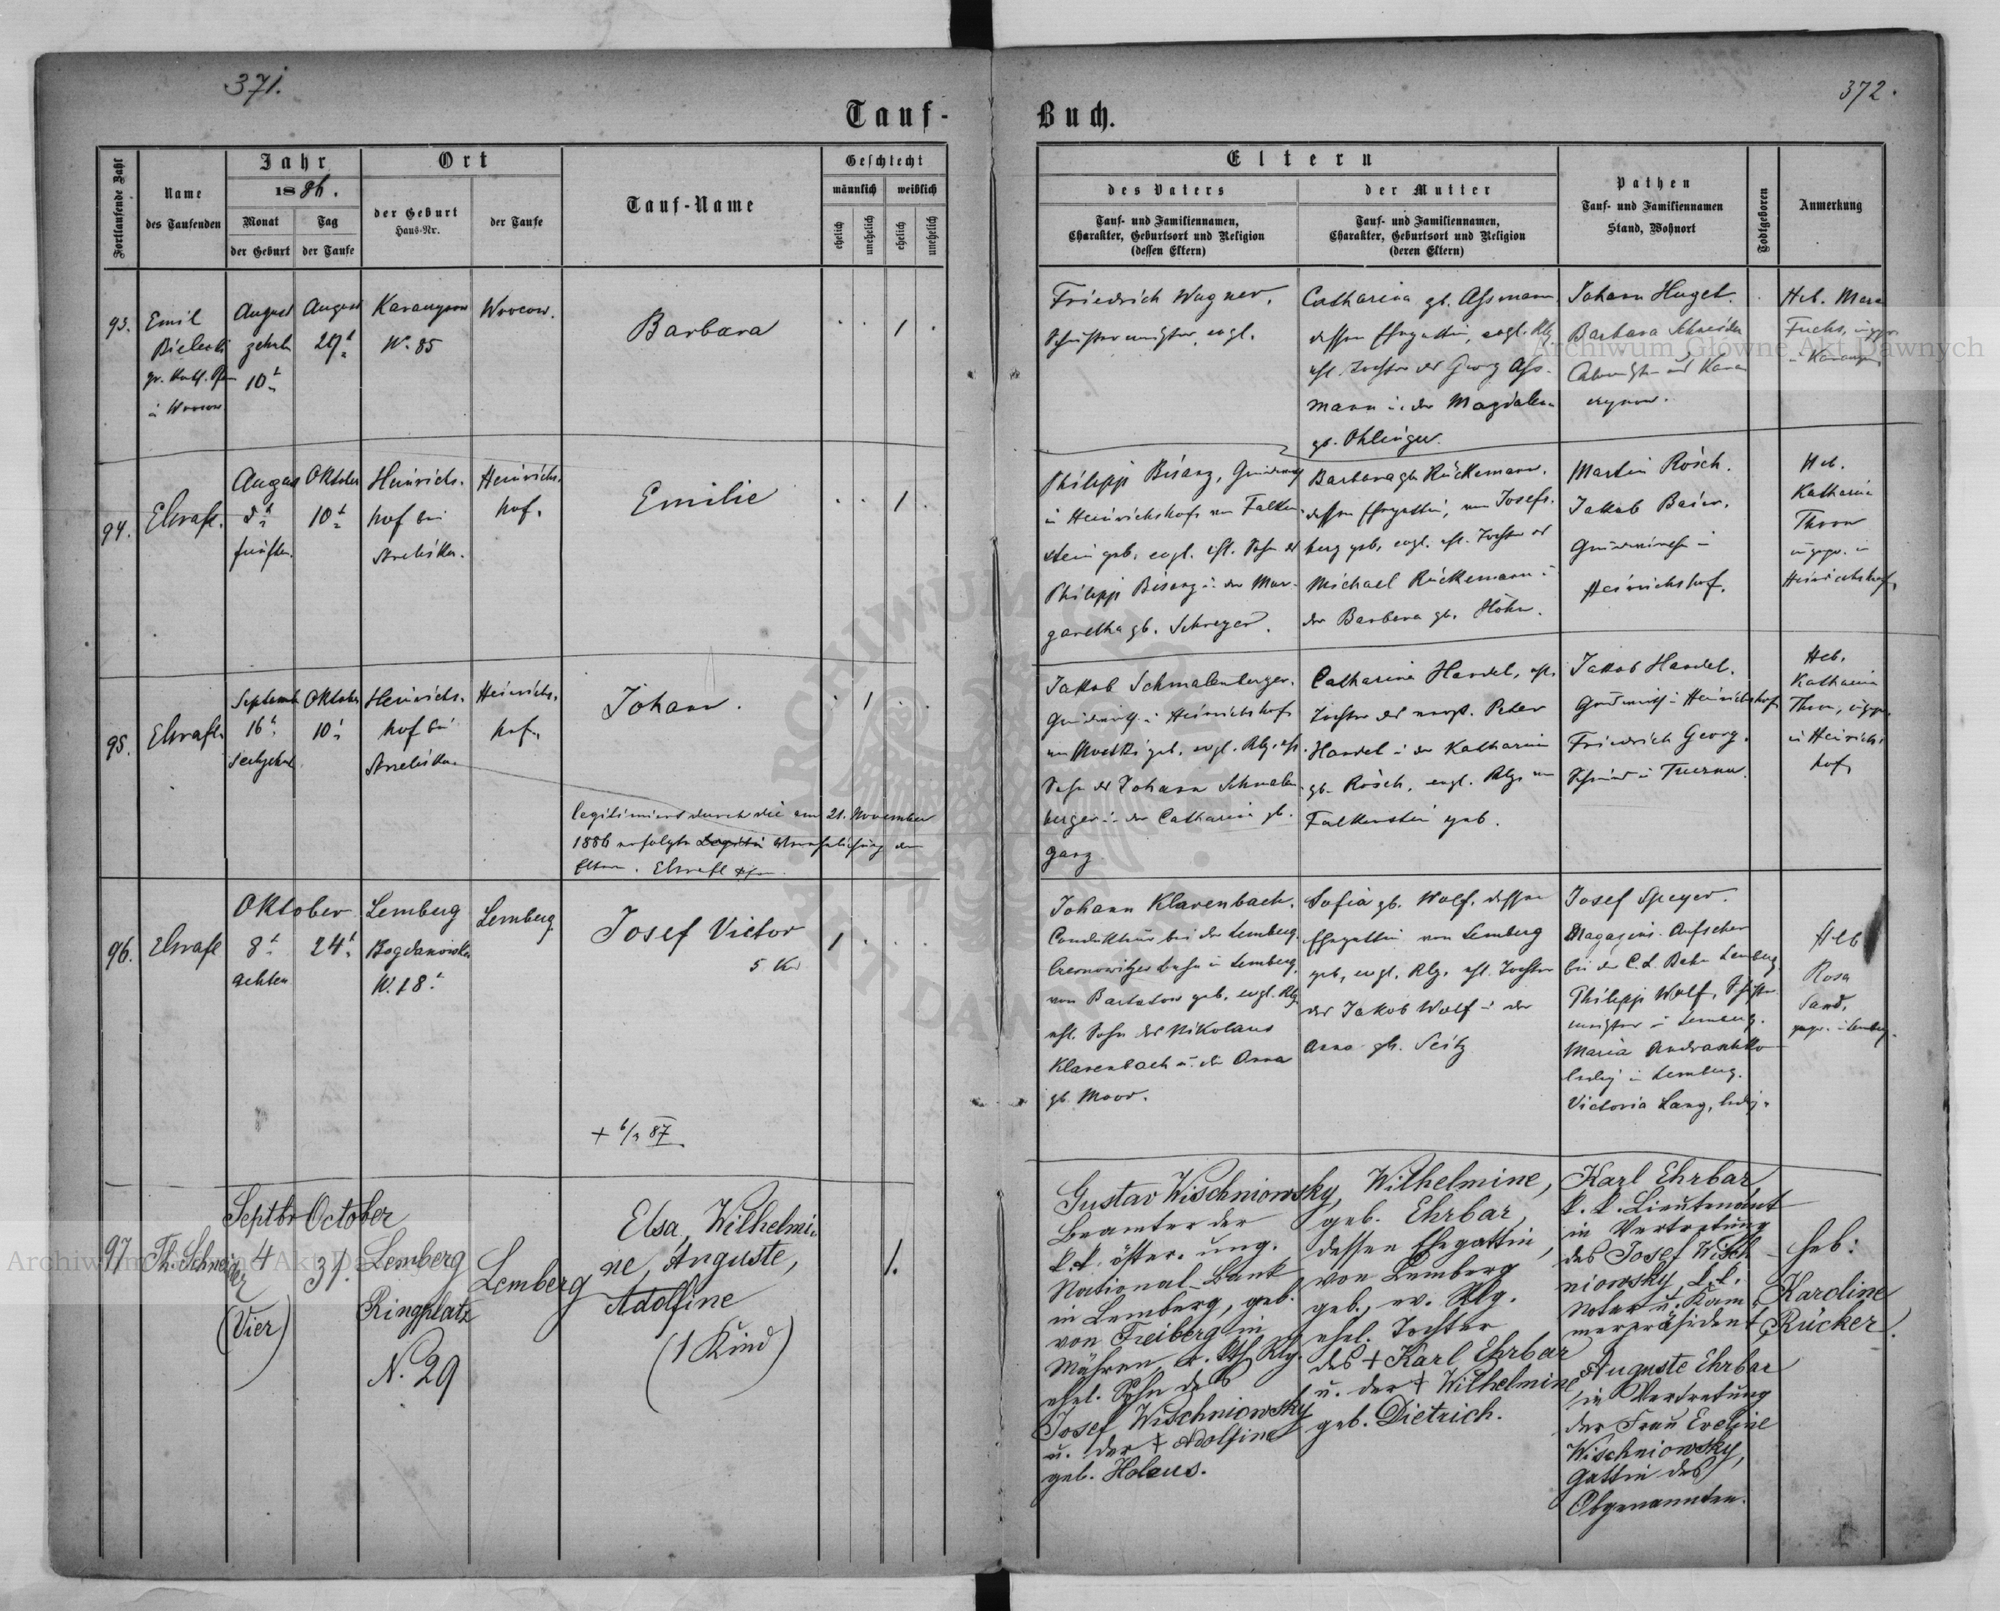 371.
372.
Tauf-
Buch.
Fortlaufende Zahl
Name
des Taufenden
Jahr
1886.
Monat
der Geburt
Tag
der Taufe
Ort
der Geburt
Haus-Nr.
der Taufe
Tauf-Name
Geschlecht
männlich
weiblich
ehelich
unehelich
ehelich
unehelich
Eltern
des Vaters
Tauf- und Familiennamen,
Charakter, Geburtsort und Religion
(dessen Eltern)
der Mutter
Tauf- und Familiennamen,
Charakter, Geburtsort und Religion
(deren Eltern)
Pathen
Tauf- und Familiennamen
Stand, Wohnort
Todtgeboren
Anmerkung
93.
Emil
August
zehnte
10t
August
N. 85
Barbara
1
Friedrich Wagner,
Catharina gb. Assmann
Tochter des Georg Ass-
mann u. der Magdalena
gb. Ohlinger.
Johann Huget.
Barbara Schneider
Heb. Maria
Fuchs,
94.
Ehrafl.
August
5t
fünften.
Oktober
10t
Heinrichs-
hof bei
Heinrichs-
hof.
Emilie
1
Philipp Bisanz,
in Heinrichshof von Falken-
stein geb. evgl. ehl. Sohn des
Philipp Bisanz u. der Mar-
garetha gb. Schreyer.
Barbara gb. Rückemann.
dessen Ehegattin, von Josefs-
berg geb. evgl. ehl. Tochter des
Michael Rückemann u
der Barbara gb. Höhn.
Martin Rösch.
Jakob Baier,
Heinrichshof.
Heb.
Katharina
Thom
Heinrichshof
95.
Ehrafl.
Septemb
16t
sechzehnt
Oktober
10t
Heinrichs-
hof bei
Heinrichs-
hof.
Johann.
1
legitimiert durch die am 21. November
1886 erfolgte Verehelichung der
Eltern. Ehrafl Pfr.
Jakob Schmalenberger.
Heinrichshof
Sohn des Johann Schmalen-
berger u. der Catharina gb.
Ganz
Catharina Handel, ehl.
Tochter des Peter
Handel u der Katharina
gb. Rösch, evgl. Rlg. von
Falkenstein geb.
Jakob Handel.
Heinrichshof
Friedrich Georg.
Heb.
Katharina
Thom,
in Heinrichs-
hof
96.
Ehrafl
Oktober
8t
achten
24t
Lemberg
N. 18
Lemberg.
Josef Victor
5 Kr
1
+ 6/3 87
Johann Klarenbach.
Conducteur bei der Lemberg.
Czernowitzer Bahn in Lemberg,
von Bartatow geb. evgl. Rlg
ehl. Sohn des Nikolaus
Klarenbach u. der Anna
gb. Moor.
Sofia gb. Wolf. dessen
Ehegattin von Lemberg
geb. evgl. Rlg. ehl. Tochter
des Jakob Wolf u der
Anna gb. Seitz
Josef Speyer.
Magazins-Aufseher
bei der C. L. Bahn Lemberg.
Philipp Wolf,
meister in Lemberg.
Maria
ledig in Lemberg.
Victoria Lang, ledig.
Heb
Rosa
Sand,
97
Th. Schneider
Septbr
4
(Vier)
October
31.
Lemberg
Ringplatz
N. 29
Lemberg
Elsa, Wilhelmi-
ne, Auguste,
Adolfine
(1 Kind)
1.
Gustav Wischniowsky,
Beamter der
k. k. österr. ung.
National-Bank
in Lemberg, geb.
von Freiberg in
Mähren, r. kth. Rlg.
ehel. Sohn des
Josef Wischniowsky
u. der + Adolfine
geb. Holaus.
Wilhelmine,
geb. Ehrbar,
dessen Ehegattin,
von Lemberg
geb., ev. Rlg.
ehel. Tochter
des + Karl Ehrbar
u. der + Wilhelmine
geb. Dietrich.
Karl Ehrbar
k. k. Lieutenant
in Vertretung
des Josef Wisch-
niowsky, k. k.
Notar u. Kam-
merpräsident
Auguste Ehrbar
in Vertretung
der Frau Eveline
Wischniowsky,
Gattin des
Obgenannten.
Heb:
Karoline
Rücker.
Archiwum Główne Akt Dawnych
Archiwum Główne Akt Dawnych